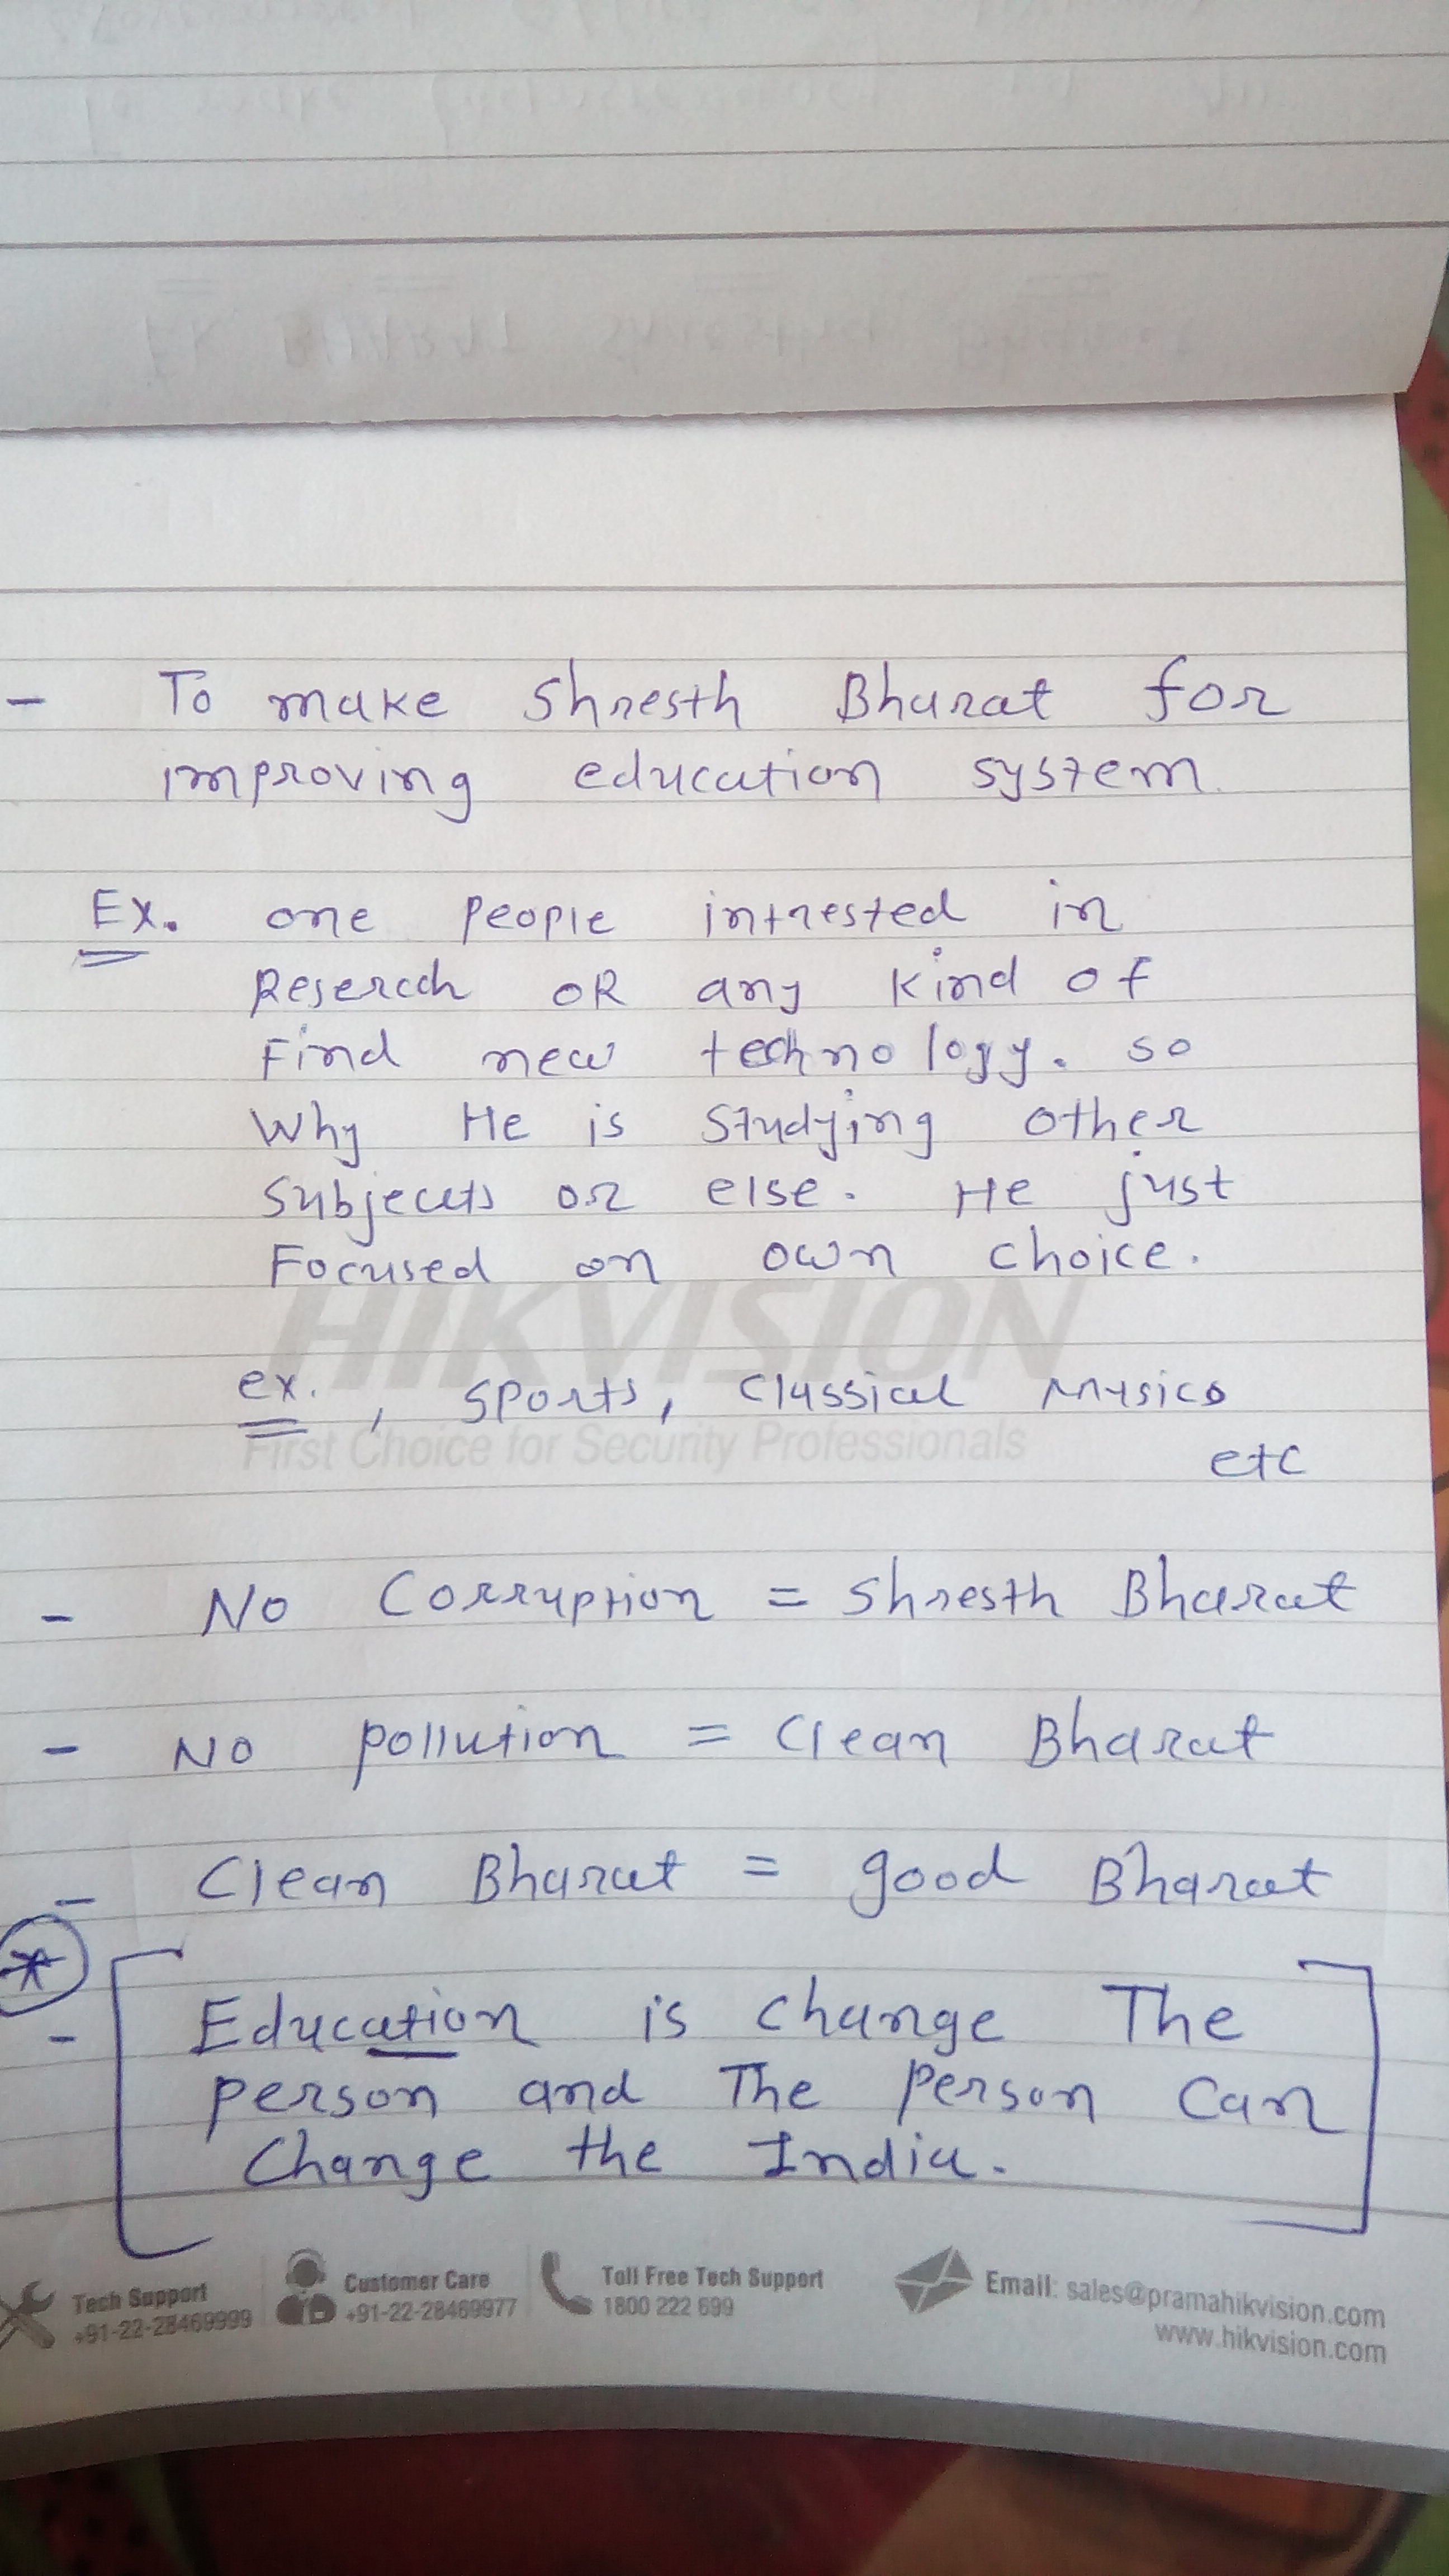 - To make Shresth Bharat for
improving education system.
Ex. one people intrested in
Reserch OR any kind of
Find new technology. so
Why He is studying other
Subjects or else. He just
Focused on own choice.
HIKVISION
ex. , sports, classical music
First Choice for Security Professionals
etc
- No Corruption = Shresth Bharat
- No pollution = Clean Bharat
- Clean Bharat = good Bharat
*
- [ Education is change The
person and The person can
Change the India. ]
Tech Support Customer Care Toll Free Tech Support Email: sales@pramahikvision.com
+91-22-28469999 +91-22-28469977 1800 222 699 www.hikvision.com